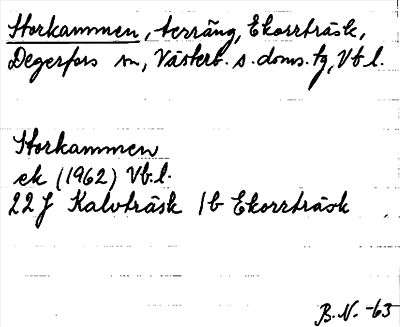 Storkammen, terräng, Ekorrträsk,
Degerfors sn, Västerb. s. doms. tg, Vb l.
Storkammen
ek (1962) Vb. l.
22 J Kalvträsk 1b Ekorrträsk
B. N. -63